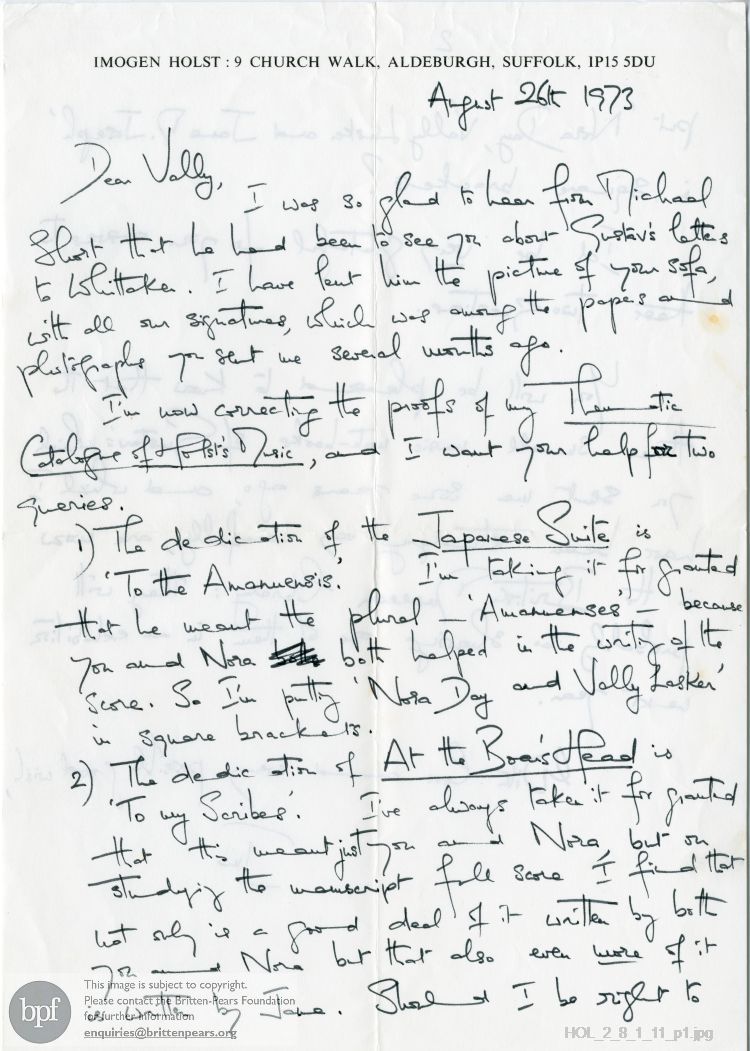 IMOGEN HOLST : 9 CHURCH WALK, ALDEBURGH, SUFFOLK, IP15 5DU
August 26th 1973
Dear Vally,
I was so glad to hear from Michael
Short that he had been to see you about Gustav's letters
to Whittaker. I have lent him the picture of your sofa,
with all our signatures, which was among the papers and
photographs you sent me several months ago.
I'm now correcting the proofs of my Thematic
Catalogue of Holst's Music, and I want your help for two
queries.
1) The dedication of the Japanese Suite is
'To the Amanuensis.' I'm taking it for granted
that he meant the plural – 'Amanuenses' – because
you and Nora both helped in the writing of the
score. So I'm putting 'Nora Day and Vally Lasker'
in square brackets.
2) The dedication of At the Boar's Head is
'To my Scribes.' I've always taken it for granted
that this meant just you and Nora, but on
studying the manuscript full score I find that
not only is a good deal of it written by both
you and Nora but that also even more of it
is written by Jane. Should I be right to
bpf
This image is subject to copyright.
Please contact the Britten-Pears Foundation
for further information
enquiries@brittenpears.org
HOL_2_8_1_11_p1.jpg